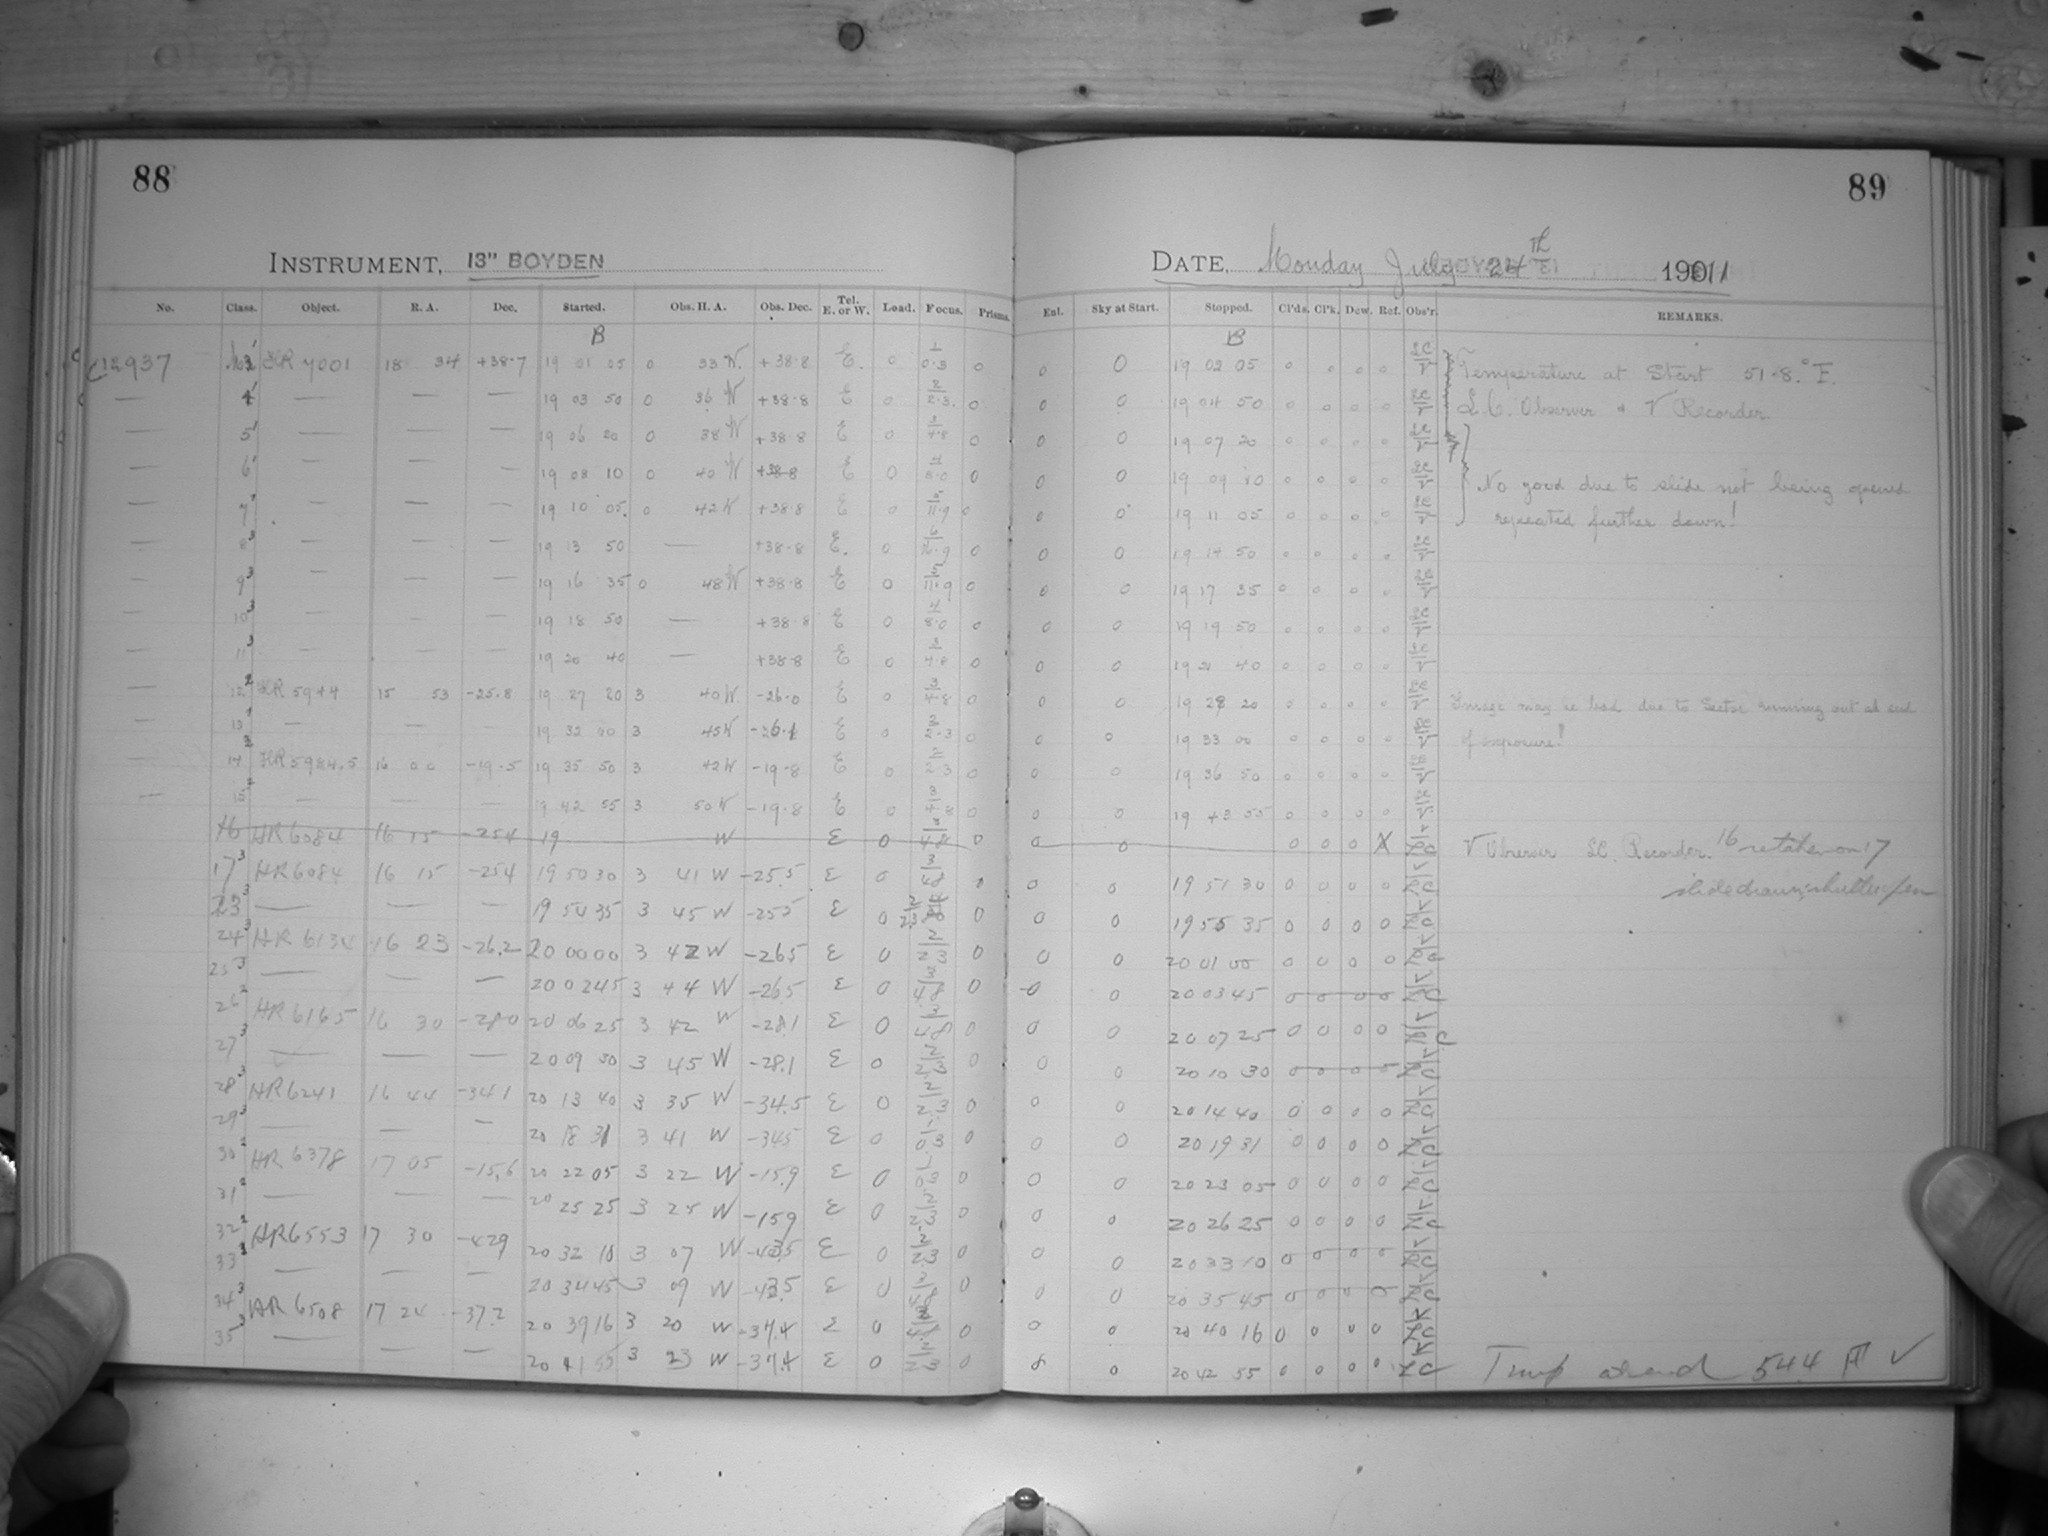 88
89
INSTRUMENT, 13" BOYDEN
DATE, Monday July 24th 1911
No. Class. Object. R. A. Dec. Started. Obs. H. A. Obs. Dec. Tel. E. or W. Load. Focus. Prisms. Enl. Sky at Start. Stopped. Cl'ds. Cl'k. Dew. Ref. Obs'r. REMARKS.
B B
12937 HR 7001 18 34 +38.7 19 01 05 0 33 W. +38.8 E. 0 0 0 0 19 02 05 0 0 0 0 Temperature at Start 51.8.° F.
— 4 — — — 19 03 50 0 36 W +38.8 E 0 2/2.3. 0 0 0 19 04 50 0 0 0 0 L.C. Observer & V Recorder
5 — — — 19 06 20 0 38 W +38.8 E 0 3/4.8 0 0 0 19 07 20 0 0 0 0
6 — — — 19 08 10 0 40 W +38.8 E 0 0 0 0 19 09 10 0 0 0 0 No good due to slide not being opened
7 — — — 19 10 05. 0 42 W +38.8 E 0 0 0 0 19 11 05 0 0 0 0 repeated further down!
8 — — — 19 13 50 — +38.8 E. 0 0 0 0 19 14 50 0 0 0 0
9 — — — 19 16 35 0 48 W +38.8 E 0 0 0 0 19 17 35 0 0 0 0
10 — — — 19 18 50 — +38.8 E 0 0 0 0 19 19 50 0 0 0 0
11 — — — 19 20 40 — +38.8 E 0 0 0 0 19 21 40 0 0 0 0
12 HR 5944 15 53 -25.8 19 27 20 3 40 W -26.0 E 0 3/4.8 0 0 0 19 28 20 0 0 0 0 Image may be bad due to Sector running out at end
13 — — — 19 32 00 3 45 W -26.1 E 0 2/2.3 0 0 0 19 33 00 0 0 0 0 of exposure!
14 HR 5984.5 16 00 -19.5 19 35 50 3 42 W -19.8 E 0 2/2.3 0 0 0 19 36 50 0 0 0 0
15 — — — 19 42 55 3 50 W -19.8 E 0 3/4.8 0 0 0 19 43 55 0 0 0 0
16 HR 6084 16 15 -254 19 W E 0 3/4.8 0 0 0 0 0 0 X V Observer LC. Recorder. 16 retaken on 17
17 HR 6084 16 15 -254 19 50 30 3 41 W -25.5 E 0 0 0 0 19 51 30 0 0 0 0 slide drawn; shutter open
23 — — — 19 54 35 3 45 W -255 E 0 0 0 0 19 55 35 0 0 0 0
24 HR 6134 16 23 -26.2 20 00 00 3 42 W -265 E 0 2/2.3 0 0 0 20 01 00 0 0 0 0
25 — — — 20 02 45 3 44 W -265 E 0 3/4.8 0 0 0 20 03 45 0 0 0 0
26 HR 6165 16 30 -280 20 06 25 3 42 W -281 E 0 0 0 20 07 25 0 0 0 0
27 — — — 20 09 30 3 45 W -28.1 E 0 0 0 20 10 30 0 0 0 0
28 HR 6241 16 44 -341 20 13 40 3 35 W -34.5 E 0 2/2.3 0 0 0 20 14 40 0 0 0 0
29 — — — 20 18 31 3 41 W -345 E 0 0 0 0 20 19 31 0 0 0 0
30 HR 6378 17 05 -15.6 20 22 05 3 22 W -15.9 E 0 0 0 0 20 23 05 0 0 0 0
31 — — — 20 25 25 3 25 W -159 E 0 2/2.3 0 0 0 20 26 25 0 0 0 0
32 HR 6553 17 30 -429 20 32 10 3 07 W E 0 2/2.3 0 0 0 20 33 10 0 0 0 0
33 — — — 20 34 45 3 09 W -43.5 E 0 0 0 0 20 35 45 0 0 0 0
34 HR 6508 17 24 -37.2 20 39 16 3 20 W -37.4 E 0 0 0 0 20 40 16 0 0 0 0
35 — — — 20 41 55 3 23 W -37.4 E 0 2/2.3 0 0 20 42 55 0 0 0 0 Temp at end 54.4 V